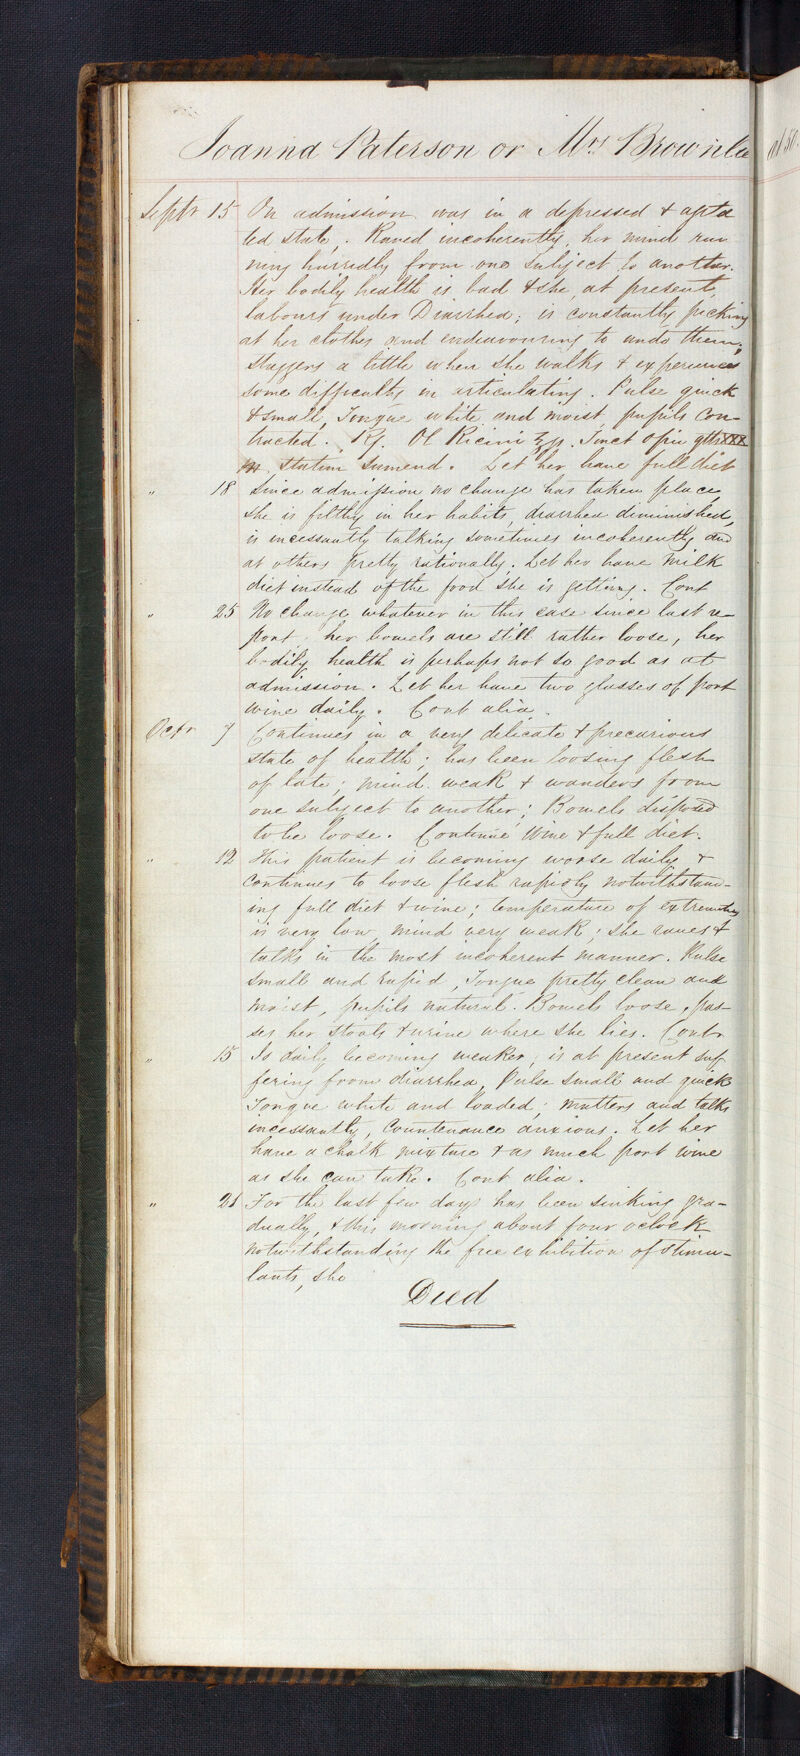 Joanna Paterson or Mrs Brownlee
at 50.
Septr 15 On admission was in a depressed & agita
ted state, . Raved incoherently, her mind run
ning hurridly from one subject to another.
Her bodily health is bad & she at present,
labours under Diarrhea; is constantly picking
at her clothes and endeavouring to undo them;
staggers a little when she walks & experiences
some difficulty in articulating. Pulse quick
& small, Tongue white and moist pupils Con-
tracted. Rj. Ol Ricini ℥ss. Tinct Opii gtts XXX
M. statim sumend. Let her have full diet
" 18 Since admission no change has taken place,
she is filthy in her habits, diarrhea diminished,
is incessantly talking sometimes incoherently and
at others pretty rationally. Let her have milk
diet instead of the food she is getting. Cont
" 25 No change whatever in this case since last re-
port, her bowels are still rather loose, her
bodily health is perhaps not so good as at
admission. Let her have two glasses of port
wine daily. Cont alia.
Octr 9 Continues in a very delicate & precarious
state of health; has been loosing flesh
of late; mind weak & wanders from
one subject to another; Bowels disposed
to be loose. Continue wine & full diet.
" 12 This patient is becoming worse daily &
continues to loose flesh rapidly notwithstand-
ing full diet & wine; temperature of extremities
is very low, mind very weak; she raves &
talks in the most incoherent manner. Pulse
small and rapid, Tongue pretty clean and
moist, pupils natural. Bowels loose, pas-
ses her stools & urine where she lies. Contr
" 15 Is daily becoming weaker, is at present suf
fering from diarrhea, Pulse small and quick
Tongue white and loaded; mutters and talks
incessantly, Countenance anxious. Let her
have a chalk mixture & as much port wine
as she can take. Cont alia.
" 21 For the last few days has been sinking gra-
dually, & this morning about four oclock
notwithstanding the free exhibition of stimu-
lants, she
Died